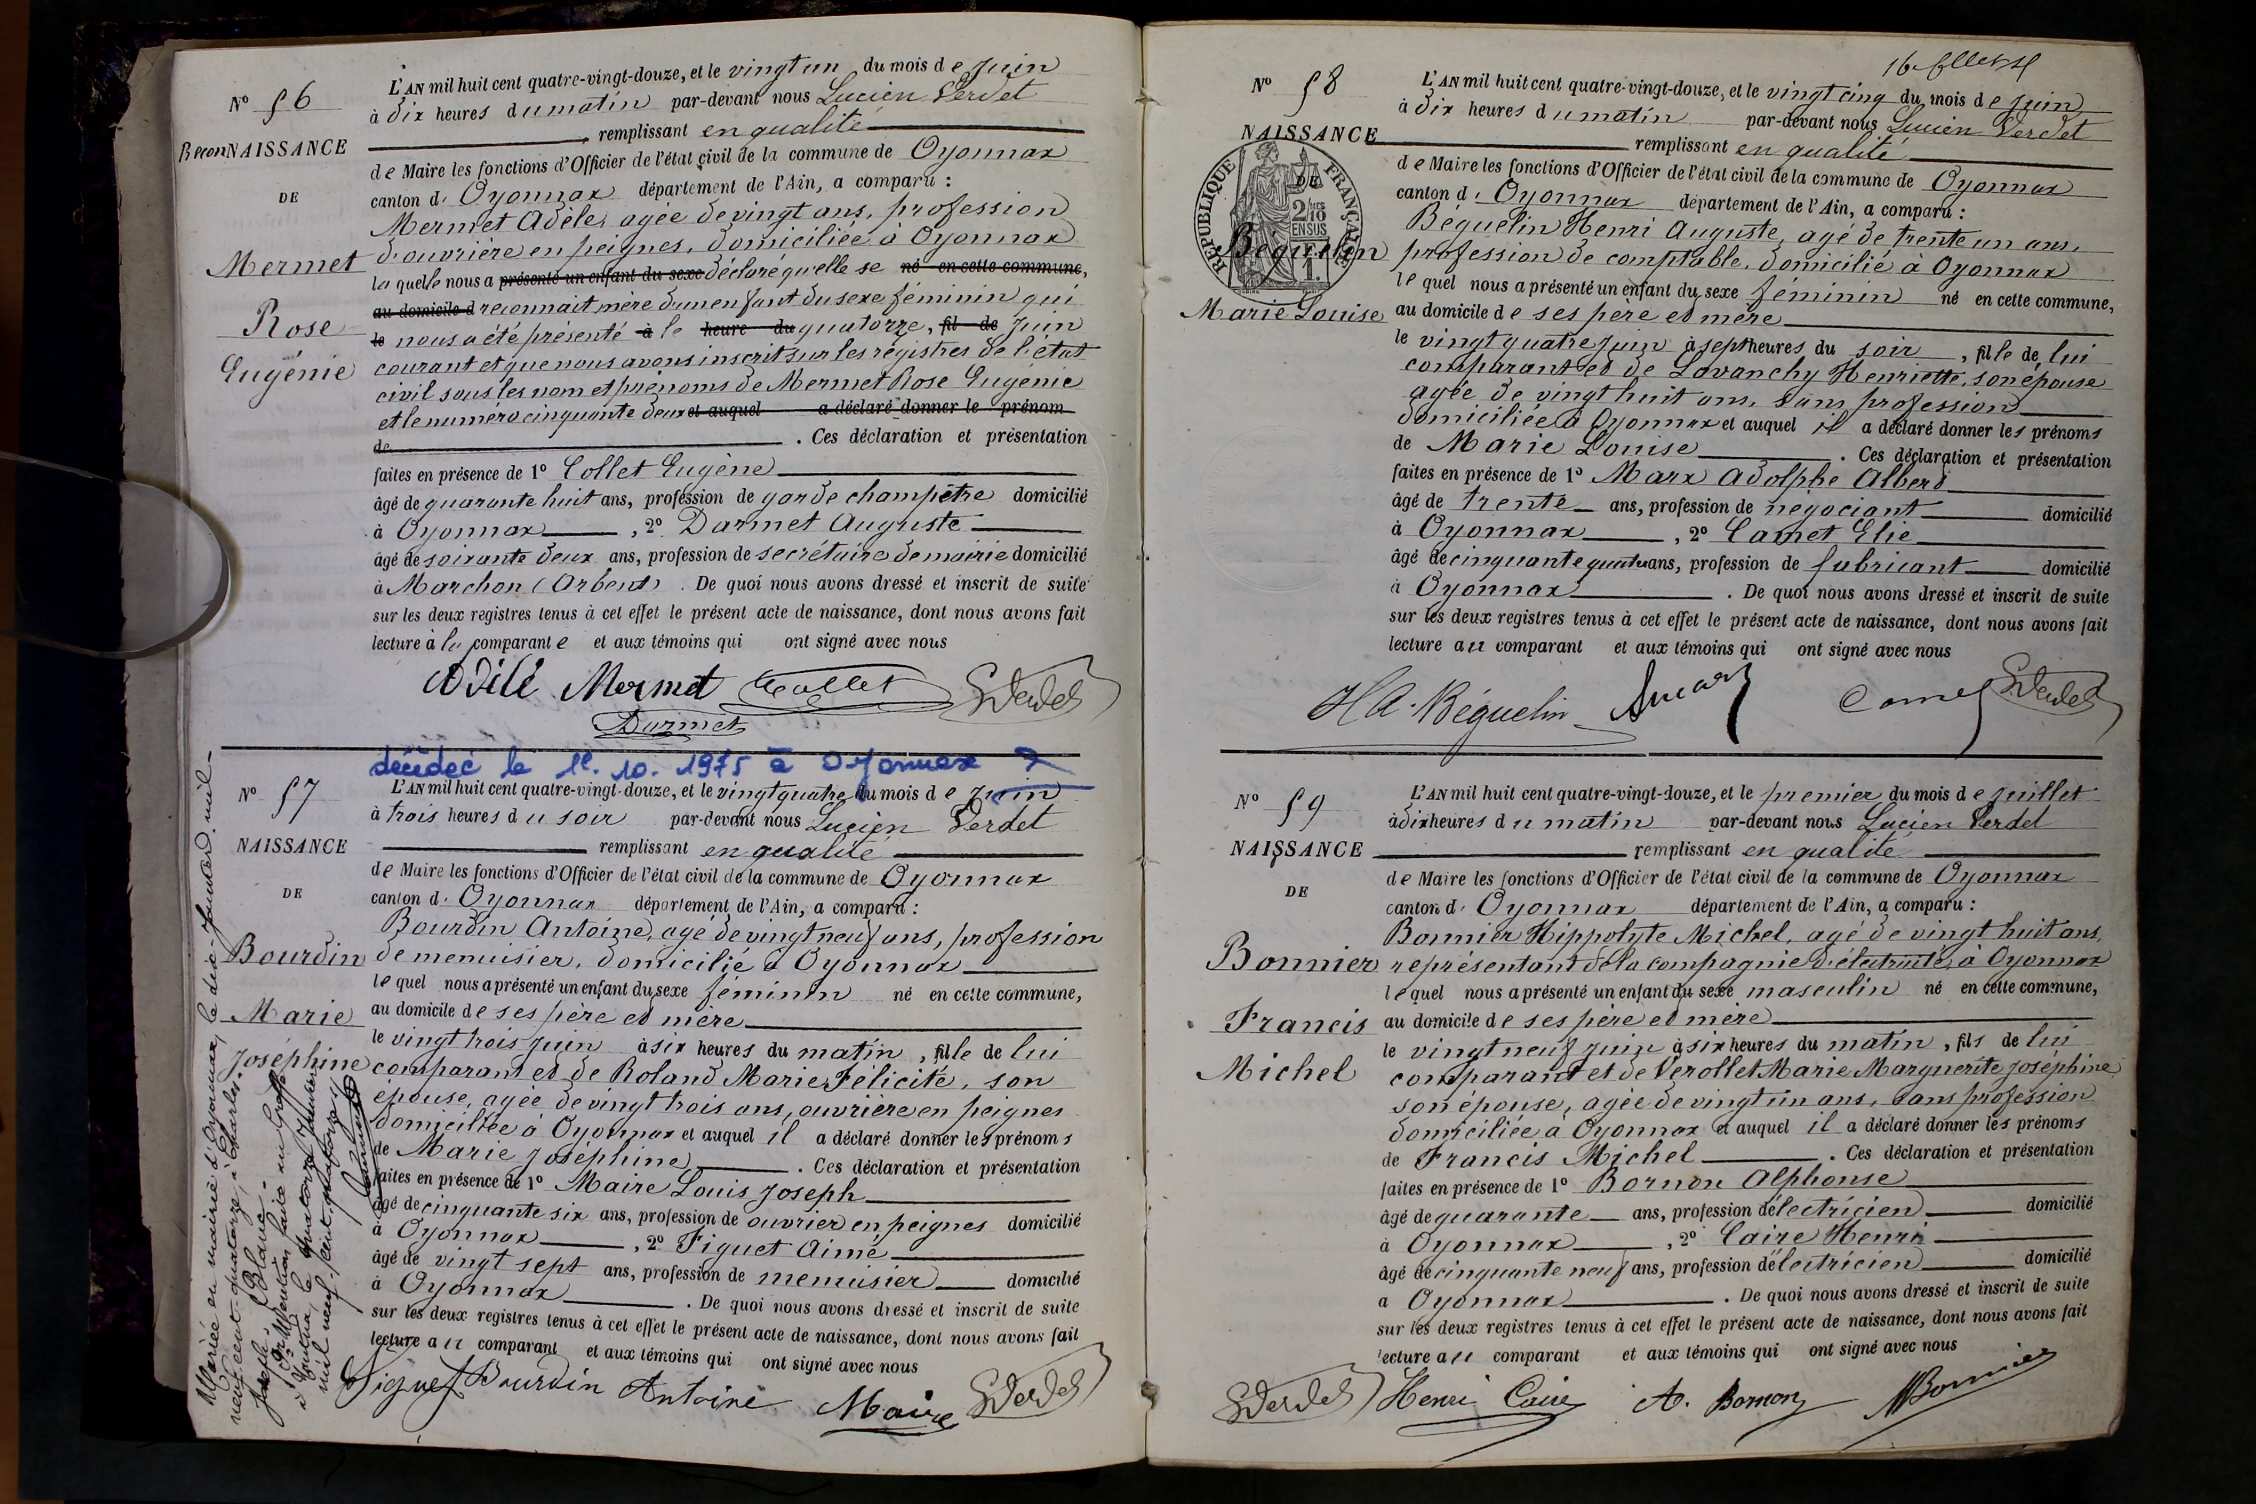 N° 56
ReconNAISSANCE
DE
Mermet
Rose
Eugénie
L'AN mil huit cent quatre-vingt-douze, et le vingt un du mois de Juin
à dix heures du matin par-devant nous Lucien Verdet
remplissant en qualité
de Maire les fonctions d'Officier de l'état civil de la commune de Oyonnax
canton d' Oyonnax département de l'Ain, a comparu :
Mermet Adèle, agée de vingt ans, profession
d'ouvrière en peignes, domiciliée à Oyonnax
la quelle nous a présenté un enfant du sexe déclaré qu'elle se né en cette commune,
au domicile d reconnait mère d'un enfant du sexe féminin qui
le nous a été présenté à le heure du quatorze, fil de Juin
courant et que nous avons inscrit sur les régistres de l'état
civil sous les nom et prénoms de Mermet Rose Eugénie
et le numéro cinquante deux et auquel a déclaré donner le prénom
de . Ces déclaration et présentation
faites en présence de 1° Collet Eugène
âgé de quarante huit ans, profession de garde champêtre domicilié
à Oyonnax , 2° Darmet Auguste
âgé de soixante deux ans, profession de secrétaire de mairie domicilié
à Marchon (Arbent) . De quoi nous avons dressé et inscrit de suite
sur les deux registres tenus à cet effet le présent acte de naissance, dont nous avons fait
lecture à la comparante et aux témoins qui ont signé avec nous
Adèle Mermet Collet Verdet
Darmet
décédée le 1e. 10. 1975 à Oyonnax
N° 57
NAISSANCE
DE
Bourdin
Marie
Joséphine
L'AN mil huit cent quatre-vingt-douze, et le vingt quatre du mois de Juin
à trois heures du soir par-devant nous Lucien Verdet
remplissant en qualité
de Maire les fonctions d'Officier de l'état civil de la commune de Oyonnax
canton d' Oyonnax département de l'Ain, a comparu :
Bourdin Antoine, agé de vingt neuf ans, profession
de menuisier, domicilié à Oyonnax
le quel nous a présenté un enfant du sexe féminin né en cette commune,
au domicile de ses père et mère
le vingt trois Juin à six heures du matin, fille de lui
comparant et de Roland Marie Félicité, son
épouse, agée de vingt trois ans, ouvrière en peignes
domiciliée à Oyonnax et auquel il a déclaré donner les prénoms
de Marie Joséphine . Ces déclaration et présentation
faites en présence de 1° Maire Louis Joseph
âgé de cinquante six ans, profession de ouvrier en peignes domicilié
à Oyonnax , 2° Figuet Aimé
âgé de vingt sept ans, profession de menuisier domicilié
à Oyonnax . De quoi nous avons dressé et inscrit de suite
sur les deux registres tenus à cet effet le présent acte de naissance, dont nous avons fait
lecture au comparant et aux témoins qui ont signé avec nous
Figuet Bourdin Antoine Maire Verdet
Mariée en mairie d'Oyonnax, le dix Janvier mil
neuf cent quatorze, à Charles
Joseph, Blanc.
Mention faite au Greffe
à Nantua, le quatorze Janvier
mil neuf cent quatorze
16
N° 58
NAISSANCE
DE
RÉPUBLIQUE FRANÇAISE
2/10 EN SUS
1F.
Béguelin
Marie Louise
L'AN mil huit cent quatre-vingt-douze, et le vingt cinq du mois de Juin
à dix heures du matin par-devant nous Lucien Verdet
remplissant en qualité
de Maire les fonctions d'Officier de l'état civil de la commune de Oyonnax
canton d' Oyonnax département de l'Ain, a comparu :
Béguelin Henri Auguste, agé de trente un ans,
profession de comptable, domicilié à Oyonnax
le quel nous a présenté un enfant du sexe féminin né en cette commune,
au domicile de ses père et mère
le vingt quatre Juin à sept heures du soir, fille de lui
comparant et de Lavanchy Henriette, son épouse
agée de vingt huit ans, sans profession
domiciliée à Oyonnax et auquel il a déclaré donner les prénoms
de Marie Louise . Ces déclaration et présentation
faites en présence de 1° Marx Adolphe Albert
âgé de trente ans, profession de négociant domicilié
à Oyonnax , 2° Camet Elie
âgé de cinquante quatre ans, profession de fabricant domicilié
à Oyonnax . De quoi nous avons dressé et inscrit de suite
sur les deux registres tenus à cet effet le présent acte de naissance, dont nous avons fait
lecture au comparant et aux témoins qui ont signé avec nous
H A. Béguelin Camet Verdet
N° 59
NAISSANCE
DE
Bonnier
Francis
Michel
L'AN mil huit cent quatre-vingt-douze, et le premier du mois de Juillet
à dix heures du matin par-devant nous Lucien Verdet
remplissant en qualité
de Maire les fonctions d'Officier de l'état civil de la commune de Oyonnax
canton d' Oyonnax département de l'Ain, a comparu :
Bonnier Hippolyte Michel, agé de vingt huit ans,
représentant de la compagnie d'électricité, à Oyonnax
le quel nous a présenté un enfant du sexe masculin né en cette commune,
au domicile de ses père et mère
le vingt neuf Juin à six heures du matin, fils de lui
comparant et de Verollet Marie Marguerite Joséphine
son épouse, agée de vingt un ans, sans profession
domiciliée à Oyonnax et auquel il a déclaré donner les prénoms
de Francis Michel . Ces déclaration et présentation
faites en présence de 1° Bornon Alphonse
âgé de quarante ans, profession d'électricien domicilié
à Oyonnax , 2° Caire Henri
âgé de cinquante neuf ans, profession d'électricien domicilié
à Oyonnax . De quoi nous avons dressé et inscrit de suite
sur les deux registres tenus à cet effet le présent acte de naissance, dont nous avons fait
lecture au comparant et aux témoins qui ont signé avec nous
Verdet Henri Caire A. Bornon Bonnier